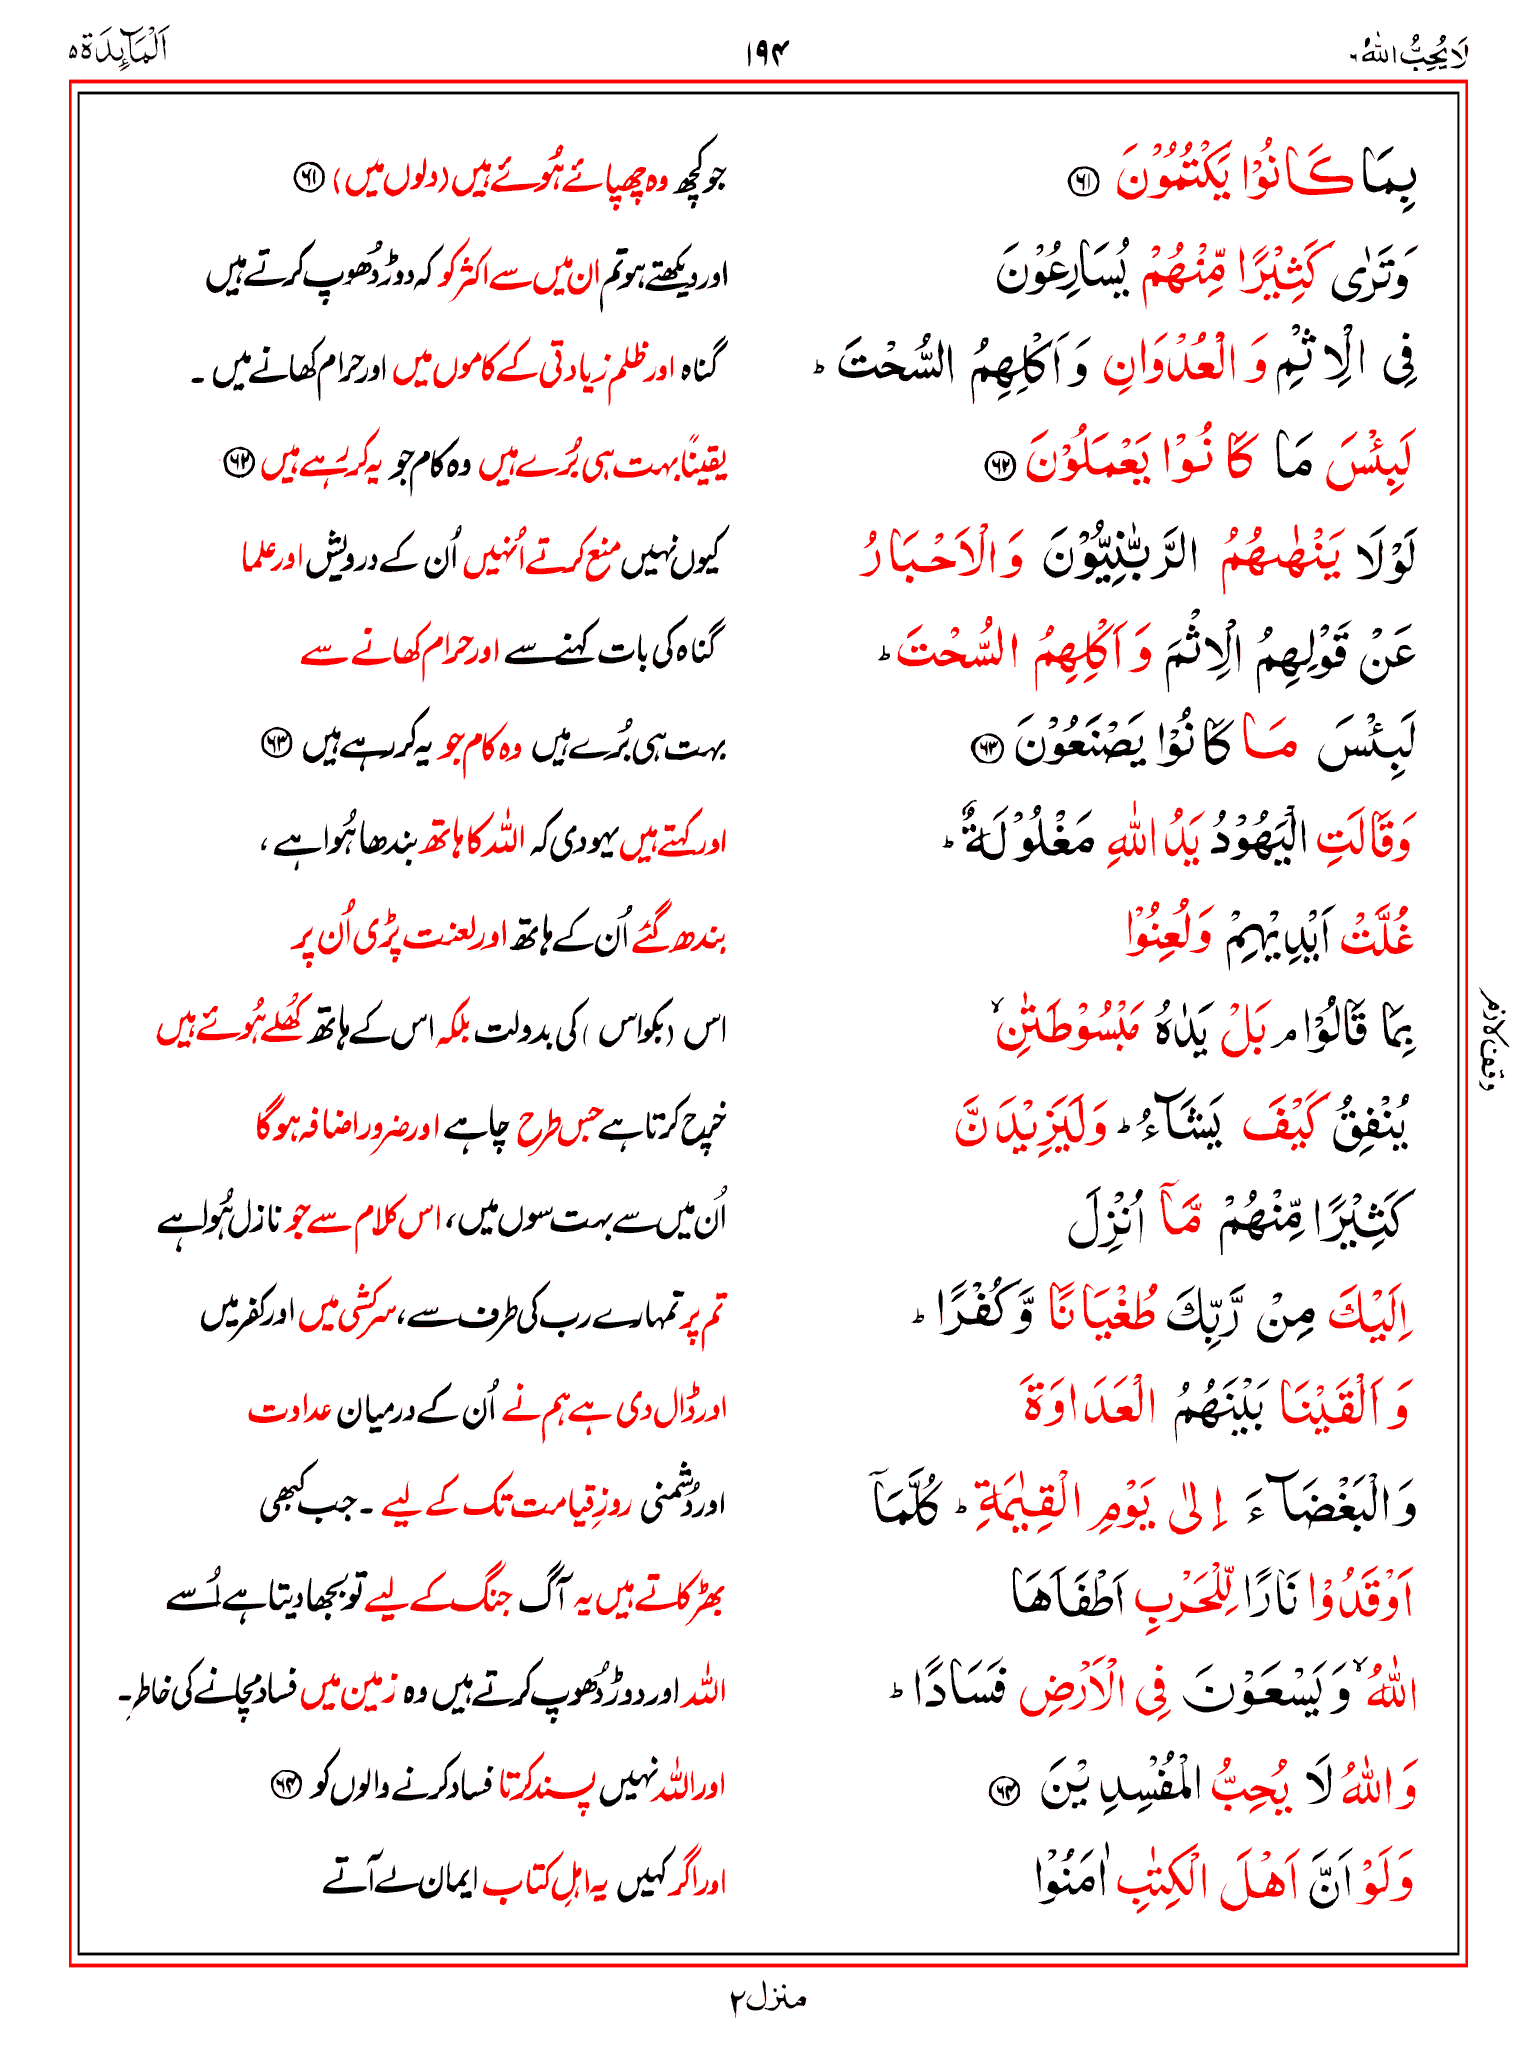 لَا يُحِبُّ اللّٰهُ ۶ ۱۹۴ اَلْمَآئِدَة ۵
بِمَا كَانُوْا يَكْتُمُوْنَ ۶۱ جو کچھ وہ چھپائے ہُوئے ہیں (دلوں میں) ۶۱
وَتَرٰى كَثِيْرًا مِّنْهُمْ يُسَارِعُوْنَ اور دیکھتے ہو تم ان میں سے اکثر کو کہ دوڑ دُھوپ کرتے ہیں
فِى الْاِثْمِ وَالْعُدْوَانِ وَاَكْلِهِمُ السُّحْتَ ؕ گناہ اور ظلم زیادتی کے کاموں میں اور حرام کھانے میں ۔
لَبِئْسَ مَا كَانُوْا يَعْمَلُوْنَ ۶۲ یقینًا بہت ہی بُرے ہیں وہ کام جو یہ کر رہے ہیں ۶۲
لَوْلَا يَنْهٰىهُمُ الرَّبّٰنِيُّوْنَ وَالْاَحْبَارُ کیوں نہیں منع کرتے اُنہیں اُن کے درویش اور علما
عَنْ قَوْلِهِمُ الْاِثْمَ وَاَكْلِهِمُ السُّحْتَ ؕ گناہ کی بات کہنے سے اور حرام کھانے سے
لَبِئْسَ مَا كَانُوْا يَصْنَعُوْنَ ۶۳ بہت ہی بُرے ہیں وہ کام جو یہ کر رہے ہیں ۶۳
وَقَالَتِ الْيَهُوْدُ يَدُ اللّٰهِ مَغْلُوْلَةٌ ؕ اور کہتے ہیں یہودی کہ اللہ کا ہاتھ بندھا ہُوا ہے ،
غُلَّتْ اَيْدِيْهِمْ وَلُعِنُوْا بندھ گئے اُن کے ہاتھ اور لعنت پڑی اُن پر
بِمَا قَالُوْا ۘ بَلْ يَدٰهُ مَبْسُوْطَتٰنِ ۙ اس (بکواس) کی بدولت بلکہ اس کے ہاتھ کُھلے ہُوئے ہیں
وقف لازم
يُنْفِقُ كَيْفَ يَشَآءُ ؕ وَلَيَزِيْدَنَّ خرچ کرتا ہے جس طرح چاہے اور ضرور اضافہ ہوگا
كَثِيْرًا مِّنْهُمْ مَّاۤ اُنْزِلَ اُن میں سے بہت سوں میں، اس کلام سے جو نازل ہُوا ہے
اِلَيْكَ مِنْ رَّبِّكَ طُغْيَانًا وَّكُفْرًا ؕ تم پر تمہارے رب کی طرف سے، سرکشی میں اور کفر میں
وَاَلْقَيْنَا بَيْنَهُمُ الْعَدَاوَةَ اور ڈال دی ہے ہم نے اُن کے درمیان عداوت
وَالْبَغْضَآءَ اِلٰى يَوْمِ الْقِيٰمَةِ ؕ كُلَّمَاۤ اور دُشمنی روزِ قیامت تک کے لیے ۔ جب کبھی
اَوْقَدُوْا نَارًا لِّلْحَرْبِ اَطْفَاَهَا بھڑکاتے ہیں یہ آگ جنگ کے لیے تو بجھا دیتا ہے اُسے
اللّٰهُ ۙ وَيَسْعَوْنَ فِى الْاَرْضِ فَسَادًا ؕ اللہ اور دوڑ دُھوپ کرتے ہیں وہ زمین میں فساد مچانے کی خاطر ۔
وَاللّٰهُ لَا يُحِبُّ الْمُفْسِدِيْنَ ۶۴ اور اللہ نہیں پسند کرتا فساد کرنے والوں کو ۶۴
وَلَوْ اَنَّ اَهْلَ الْكِتٰبِ اٰمَنُوْا اور اگر کہیں یہ اہلِ کتاب ایمان لے آتے
منزل ۲